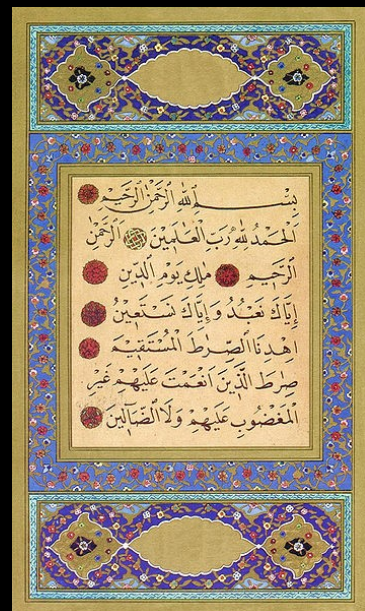 بِسْمِ اللهِ الرَّحْمٰنِ الرَّحِيمِ
اَلْحَمْدُ لِلّٰهِ رَبِّ الْعَالَمِينَ اَلرَّحْمٰنِ
الرَّحِيمِ مٰلِكِ يَوْمِ الدِّينِ
إِيَّاكَ نَعْبُدُ وَإِيَّاكَ نَسْتَعِينُ
اِهْدِنَا الصِّرَاطَ الْمُسْتَقِيمَ
صِرَاطَ الَّذِينَ اَنْعَمْتَ عَلَيْهِمْ غَيْرِ
الْمَغْضُوبِ عَلَيْهِمْ وَلَا الضَّٓالِّينَ